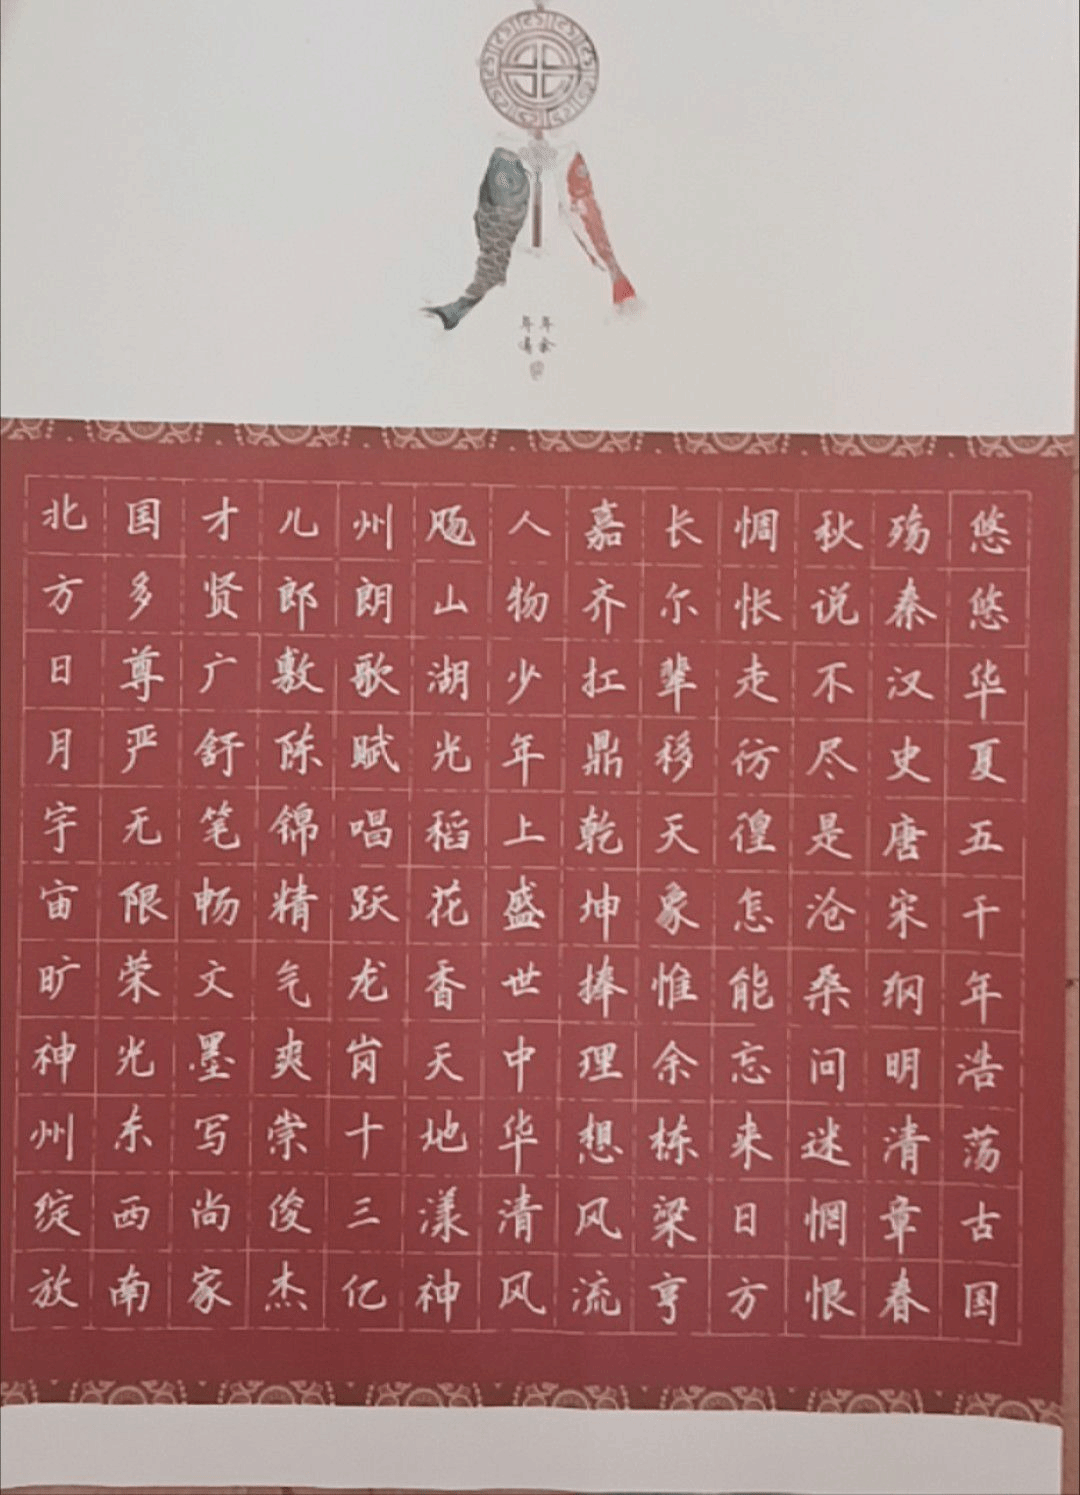 年年
有余
悠悠华夏五千年浩荡古国
殇秦汉史唐宋纲明清章春
秋说不尽是沧桑问迷惘恨
惆怅走彷徨怎能忘来日方
长尔辈移天象惟余栋梁亨
嘉齐扛鼎乾坤捧理想风流
人物少年上盛世中华清风
飏山湖光稻花香天地漾神
州朗歌赋唱跃龙岗十三亿
儿郎敷陈锦精气爽崇俊杰
才贤广舒笔畅文墨写尚家
国多尊严无限荣光东西南
北方日月宇宙旷神州绽放